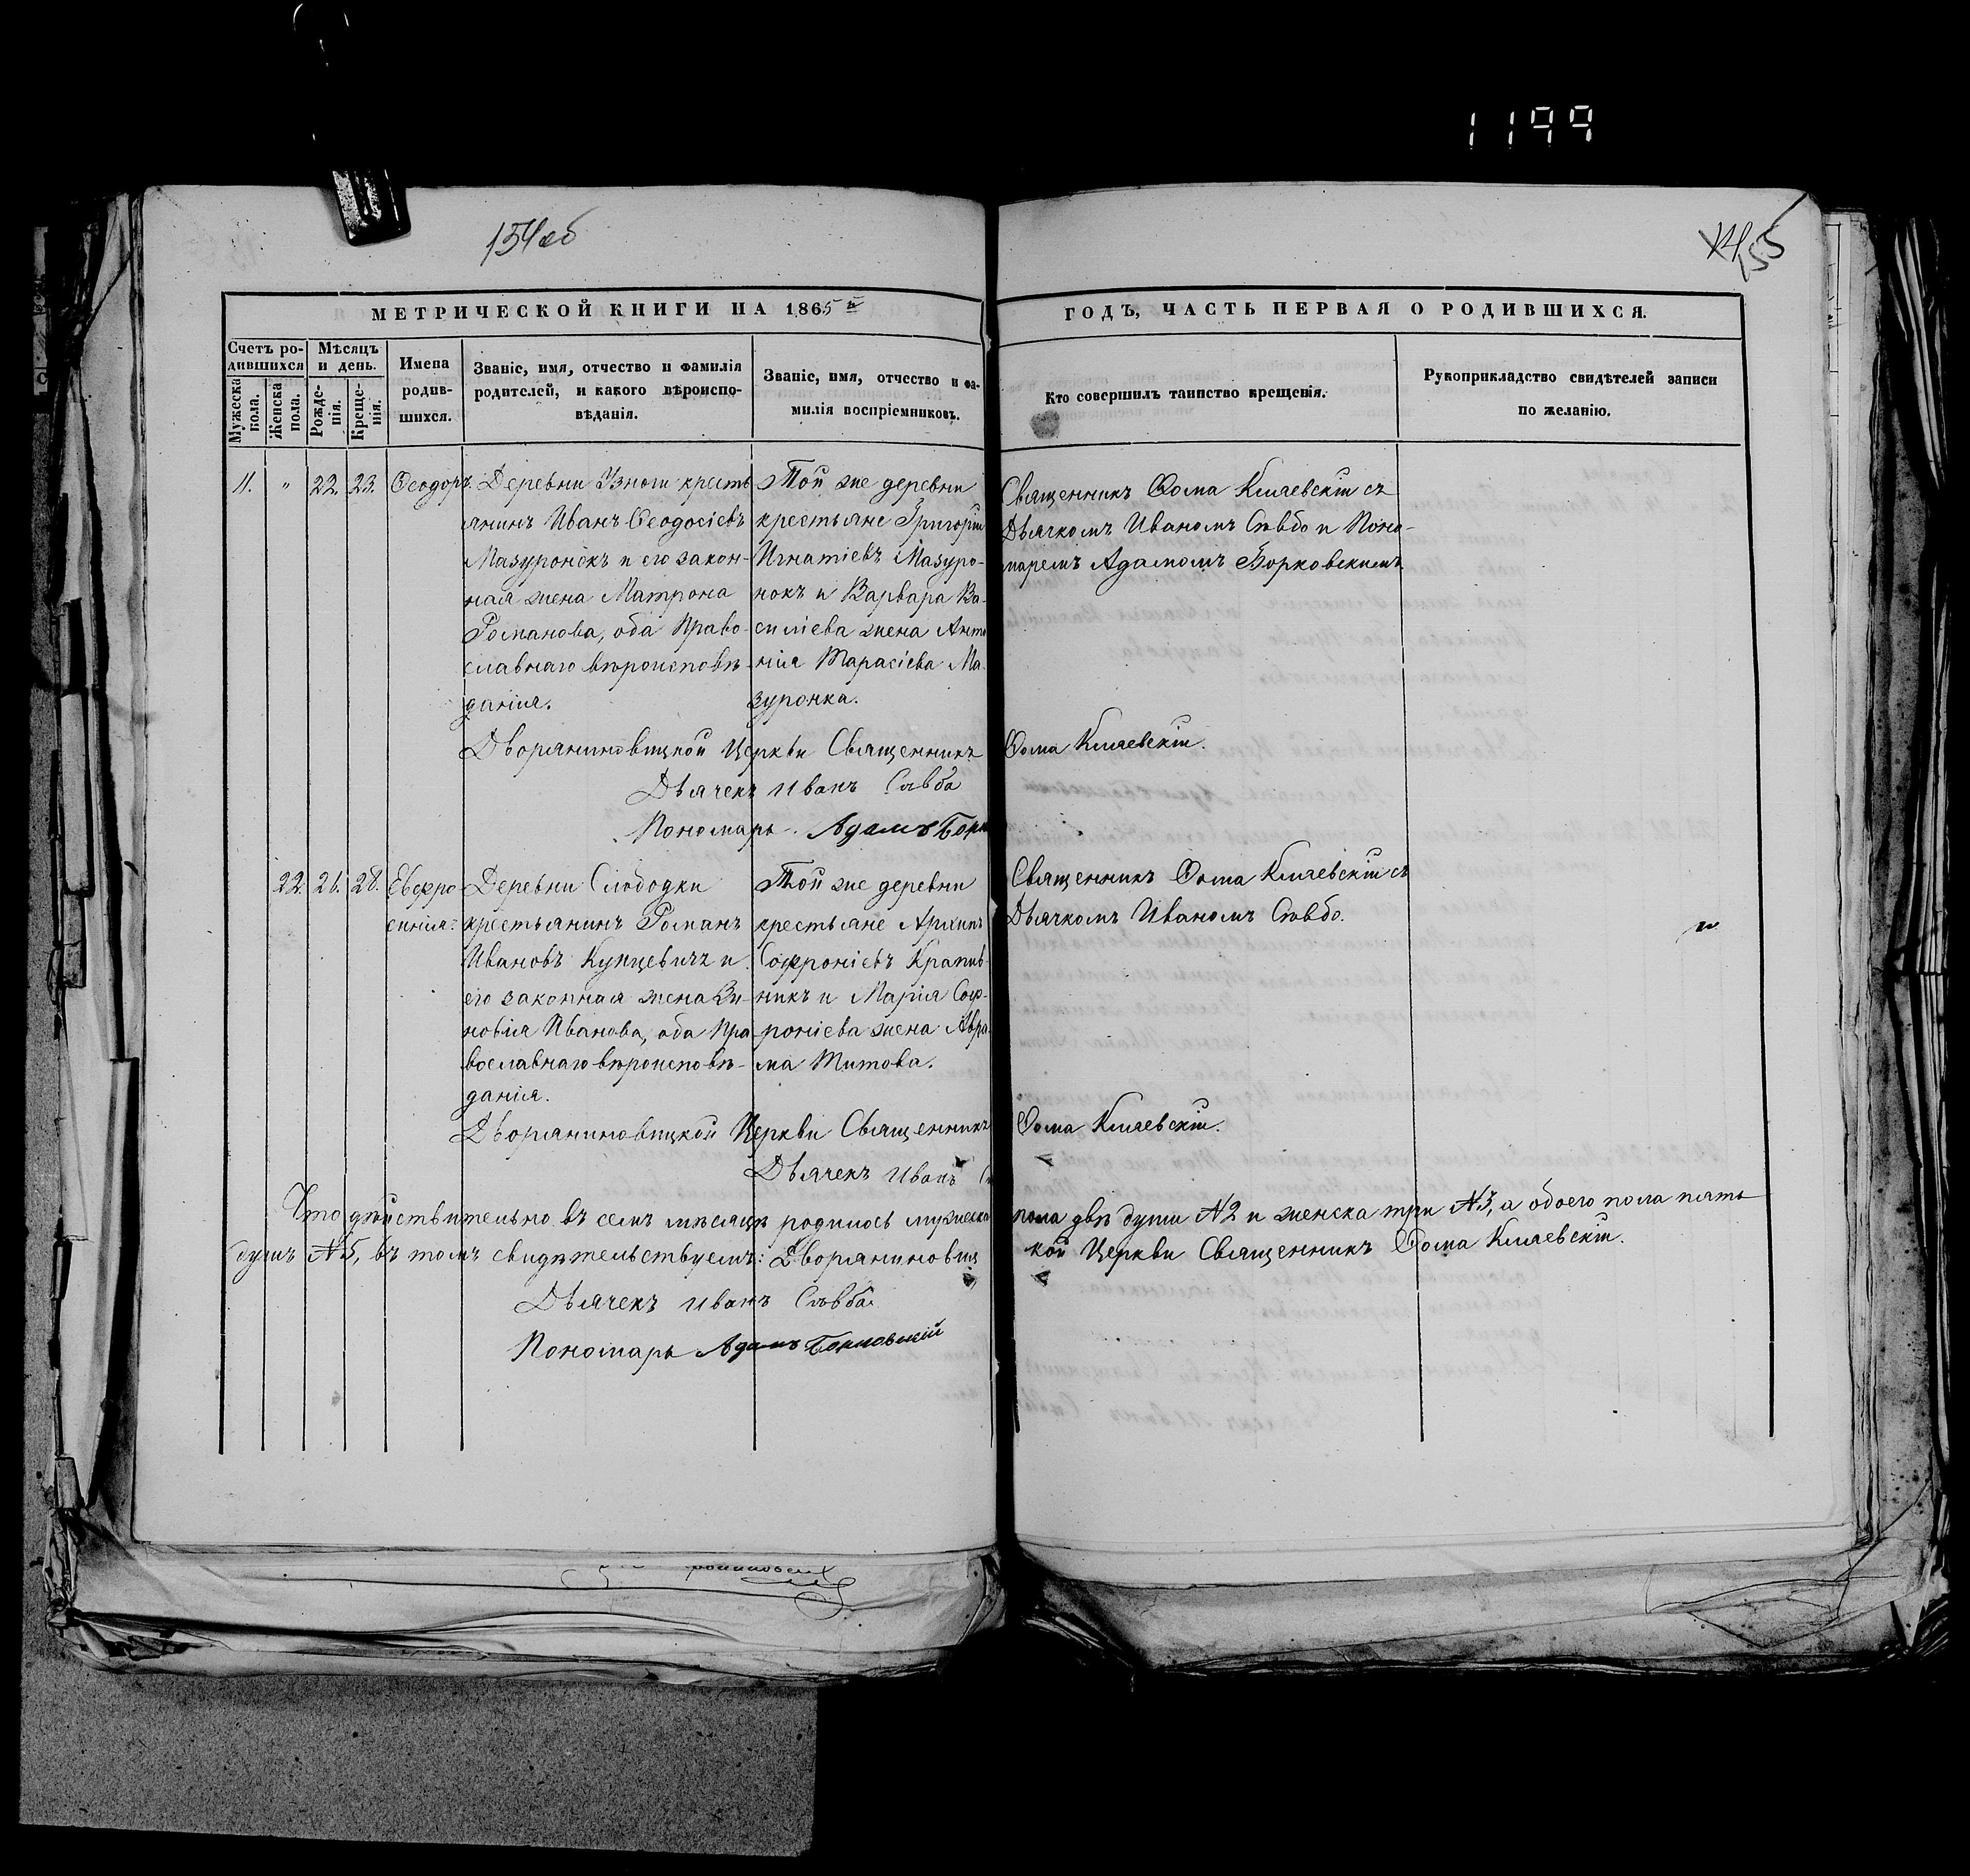 1199
154об
155
МЕТРИЧЕСКОЙ КНИГИ НА 1865й
ГОДЪ, ЧАСТЬ ПЕРВАЯ О РОДИВШИХСЯ.
Счетъ родившихся
Мужеска пола.
Женска пола.
Мѣсяцъ и день.
Рожденія.
Крещенія.
Имена родив-
шихся.
Званіе, имя, отчество и фамилія
родителей, и какого вѣроиспо-
вѣданія.
Званіе, имя, отчество и фа-
милія воспріемниковъ.
Кто совершилъ таинство крещенія.
Рукоприкладство свидѣтелей записи
по желанію.
11. " 22. 23. Ѳеодоръ.
Деревни Узноги кресть
янинъ Иванъ Ѳеодосіевъ
Мазуронокъ и его закон-
ная жена Матрона
Романова, оба Право-
славнаго вѣроисповѣ-
данія.
Той же деревни
крестьяне Григорій
Игнатіевъ Мазуро-
нокъ и Варвара Ва-
силіева жена Анто
нія Тарасіева Ма-
зуронка.
Священникъ Ѳома Княевскій съ
Дьячкомъ Иваномъ Савбо и Поно-
маремъ Адамомъ Борковскимъ
Дворяниновицкой Церкви Священникъ Ѳома Княевскій.
Дьячекъ Иванъ Савба
Пономарь Адамъ Борк
22. 26. 28. Евфро
синія.
Деревни Слободки
крестьянинъ Романъ
Ивановъ Купцевичъ и
его законная жена Зи-
новія Иванова, оба Пра
вославнаго вѣроисповѣ-
данія.
Той же деревни
крестьяне Архипъ
Софроніевъ Крапив-
никъ и Марія Соф-
роніева жена Авра
ма Титова.
Священникъ Ѳома Княевскій съ
Дьячкомъ Иваномъ Савбо.
Дворяниновицкой Церкви Священникъ Ѳома Княевскій.
Дьячекъ Иванъ
Что дѣйствительно въ семъ мѣсяцѣ родилось мужеска пола двѣ души №2 и женска три №3, а обоего пола пять
душъ №5, въ томъ свидѣтельствуемъ: Дворяниновицкой Церкви Священникъ Ѳома Княевскій.
Дьячекъ Иванъ Савба
Пономарь Адамъ Борковскій